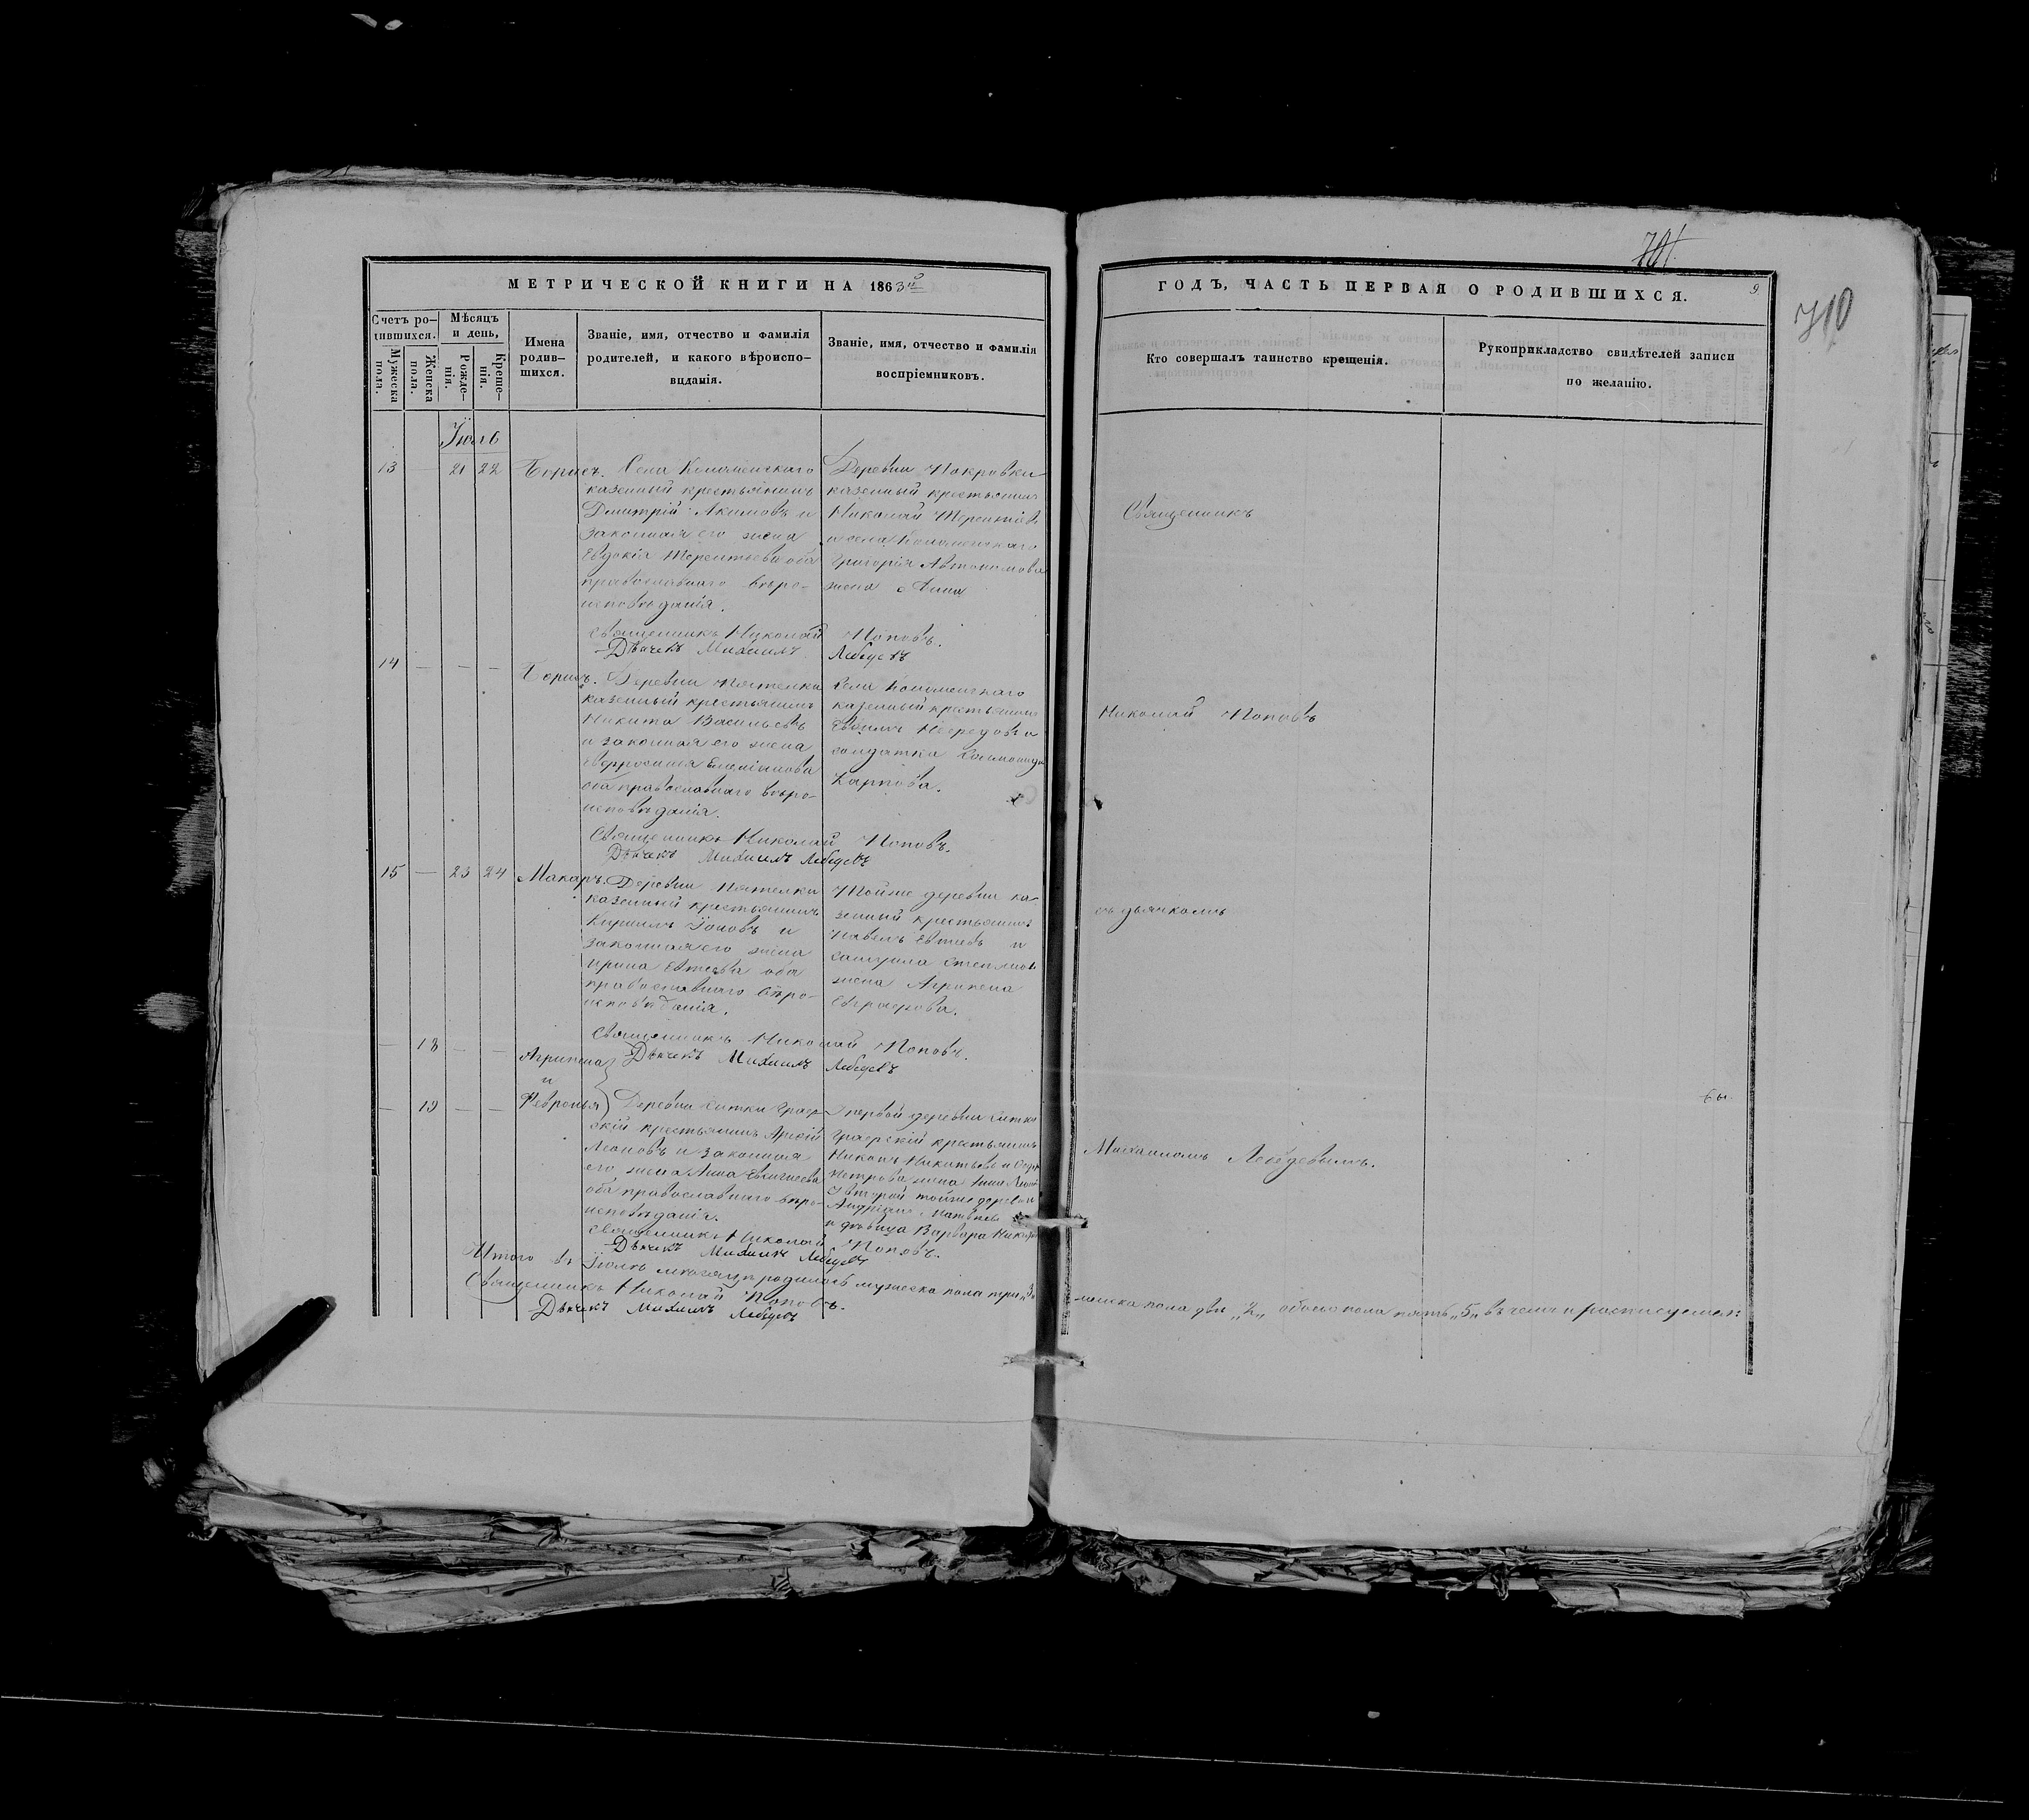 МЕТРИЧЕСКОЙ КНИГИ НА 1863й
Счетъ ро-
дившихся.
Мужеска
пола.
Женска
пола.
Мѣсяцъ
и день,
Рожде-
нія.
Креще-
нія.
Имена
родив-
шихся.
Званіе, имя, отчество и фамилія
родителей, и какого вѣроиспо-
вѣданія.
Званіе, имя, отчество и фамилія
воспріемниковъ.
Іюль
13 — 21 22 Борисъ.
Села
казенный крестьянинъ
Дмитрій Акимовъ и
законная его жена
Евдокія Терентьева оба
православнаго вѣро-
исповѣданія.
Деревни Покровки
казенный крестьянинъ
Николай Терентіевъ
и села
Григорія Автономова
жена Анна
Священникъ Николай Поповъ.
Дьячекъ Михаилъ Лебедевъ
14 — — — Борисъ.
Деревни
казенный крестьянинъ
Никита Васильевъ
и законная его жена
Евфросинія
оба православнаго вѣро-
исповѣданія.
Села
казенный крестьянинъ
солдатка
Карпова.
Священникъ Николай Поповъ.
Дьячекъ Михаилъ Лебедевъ
15 — 23 24 Макаръ.
Деревни
казенный крестьянинъ
Кириллъ Іоновъ и
законная его жена
Ирина Евтеева оба
православнаго вѣро-
исповѣданія.
Тойже деревни ка-
зенный крестьянинъ
Павелъ Евтеевъ и
жена Агрипена
Священникъ Николай Поповъ.
Дьячекъ Михаилъ Лебедевъ
— 18 — — Агрипина
и
— 19 — — Февронья
Деревни Ситки
крестьянинъ
Леоновъ и законная
его жена Анна
оба православнаго вѣро-
исповѣданія.
У первой деревни Ситки
крестьянинъ
Никитьевъ и
Петрова жена Анна
У второй тойже деревни
и дѣвица Варвара
Священникъ Николай Поповъ.
Дьячекъ Михаилъ Лебедевъ
Итого въ Іюлѣ мѣсяцѣ родилось мужеска пола три „3„
Священникъ Николай Поповъ.
Дьячекъ Михаилъ Лебедевъ
701
ГОДЪ, ЧАСТЬ ПЕРВАЯ О РОДИВШИХСЯ.
9
710
Кто совершалъ таинство крещенія.
Рукоприкладство свидѣтелей записи
по желанію.
Священникъ
Николай Поповъ
съ дьячкомъ
Михаиломъ Лебедевымъ.
женска пола двѣ „2„ обоего пола пять „5„ въ чемъ и росписуемся: